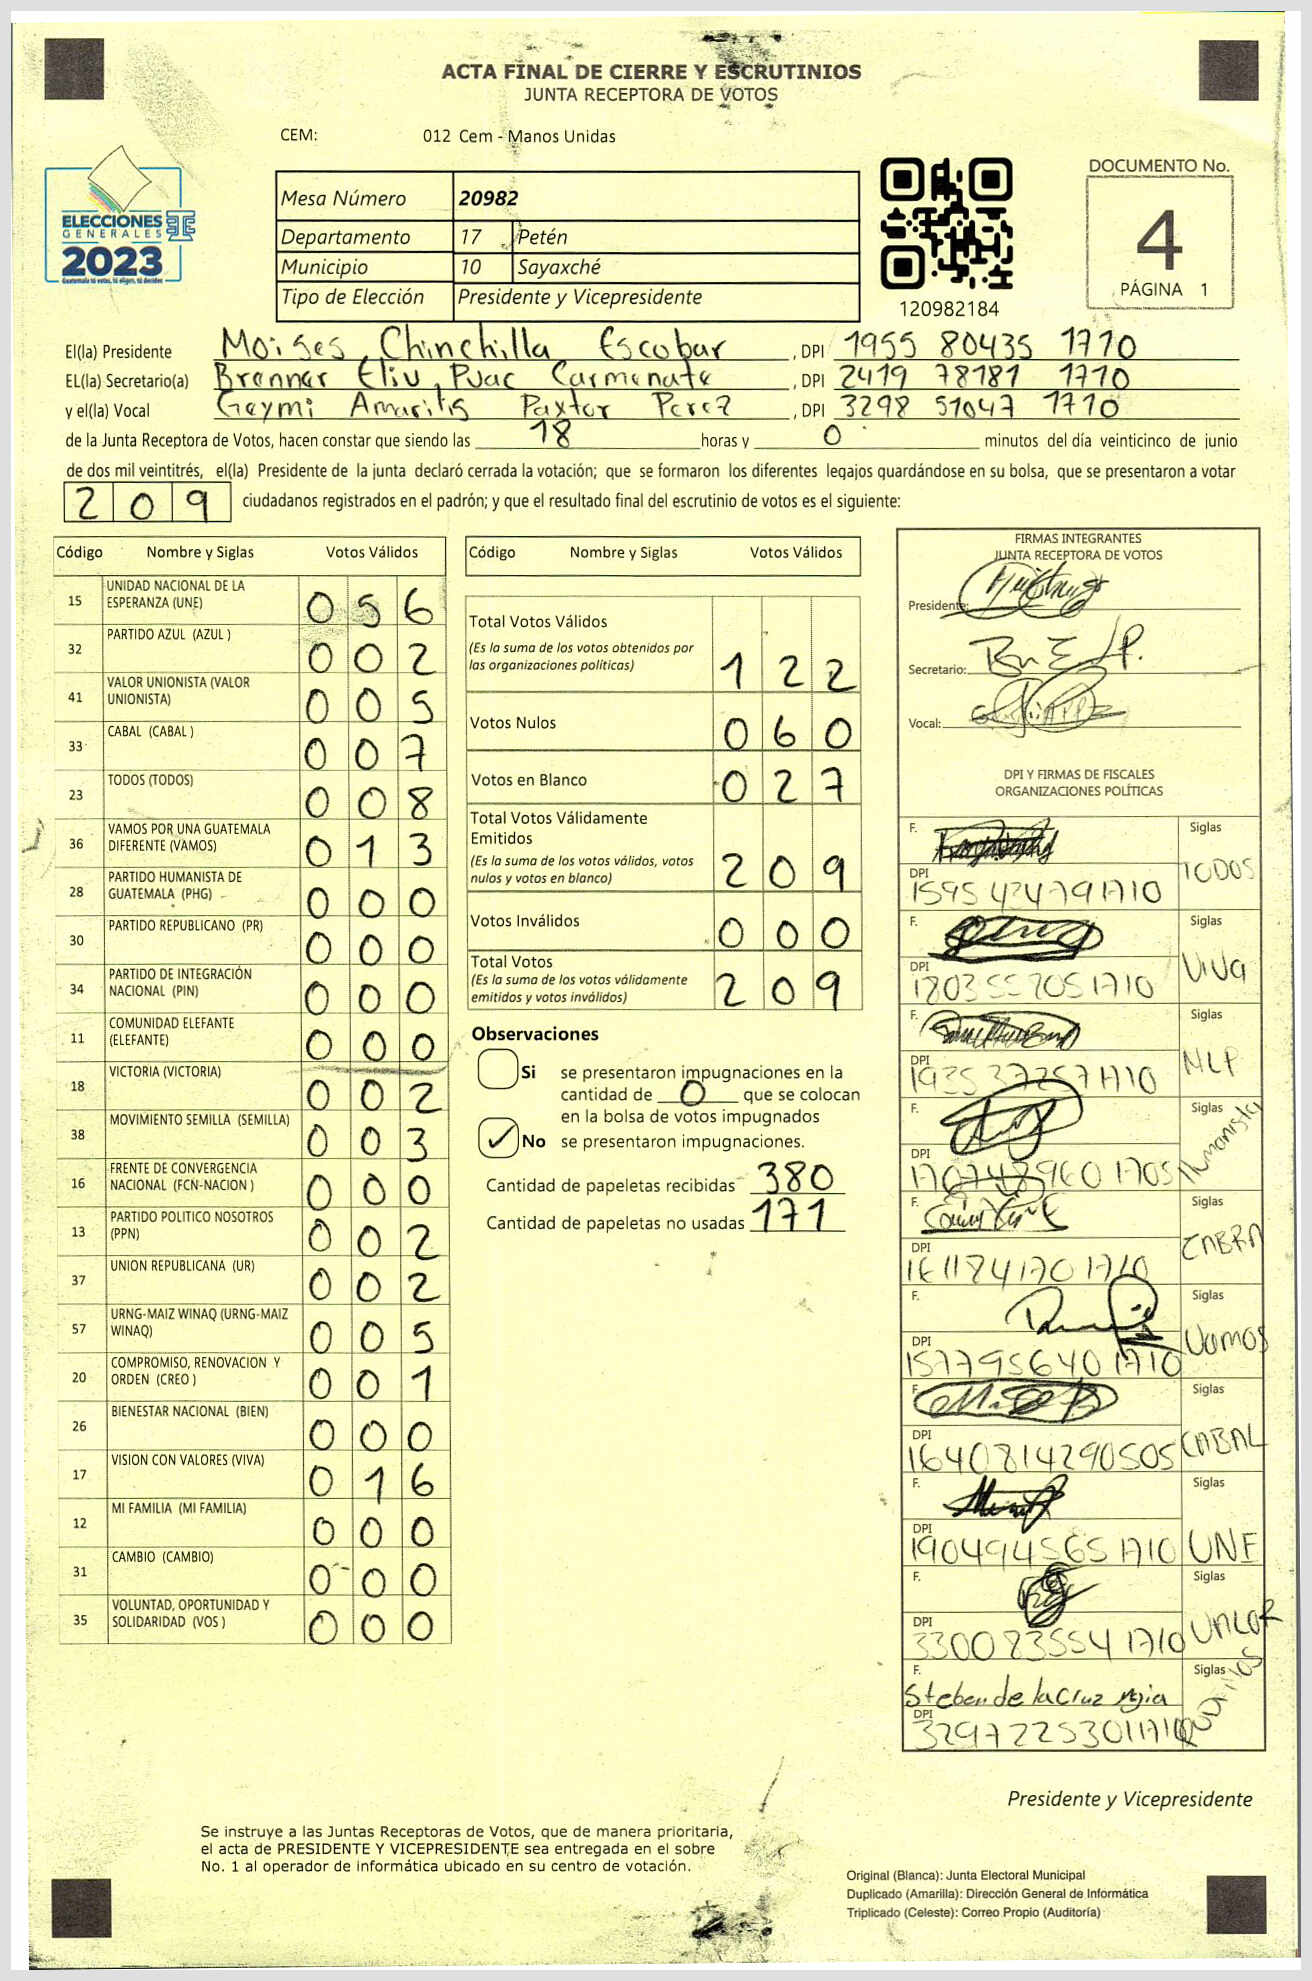 ACTA FINAL DE CIERRE Y ESCRUTINIOS
JUNTA RECEPTORA DE VOTOS
CEM: 012 Cem - Manos Unidas
ELECCIONES
GENERALES
2023
Guatemala tú votas, tú eliges, tú decides
Mesa Número 20982
Departamento 17 Petén
Municipio 10 Sayaxché
Tipo de Elección Presidente y Vicepresidente
120982184
DOCUMENTO No.
4
PÁGINA 1
El(la) Presidente Moises Chinchilla Escobar , DPI 1955 80435 1710
EL(la) Secretario(a) Brenner Eliu Puac Carmenate , DPI 2419 78181 1710
y el(la) Vocal Geymi Amarilis Paxtor Perez , DPI 3298 51047 1710
de la Junta Receptora de Votos, hacen constar que siendo las 18 horas y 0 minutos del día veinticinco de junio
de dos mil veintitrés, el(la) Presidente de la junta declaró cerrada la votación; que se formaron los diferentes legajos quardándose en su bolsa, que se presentaron a votar
209 ciudadanos registrados en el padrón; y que el resultado final del escrutinio de votos es el siguiente:
Código Nombre y Siglas Votos Válidos
15 UNIDAD NACIONAL DE LA ESPERANZA (UNE) 056
32 PARTIDO AZUL (AZUL ) 002
41 VALOR UNIONISTA (VALOR UNIONISTA) 005
33 CABAL (CABAL ) 007
23 TODOS (TODOS) 008
36 VAMOS POR UNA GUATEMALA DIFERENTE (VAMOS) 013
28 PARTIDO HUMANISTA DE GUATEMALA (PHG) 000
30 PARTIDO REPUBLICANO (PR) 000
34 PARTIDO DE INTEGRACIÓN NACIONAL (PIN) 000
11 COMUNIDAD ELEFANTE (ELEFANTE) 000
18 VICTORIA (VICTORIA) 002
38 MOVIMIENTO SEMILLA (SEMILLA) 003
16 FRENTE DE CONVERGENCIA NACIONAL (FCN-NACION ) 000
13 PARTIDO POLITICO NOSOTROS (PPN) 002
37 UNION REPUBLICANA (UR) 002
57 URNG-MAIZ WINAQ (URNG-MAIZ WINAQ) 005
20 COMPROMISO, RENOVACION Y ORDEN (CREO ) 001
26 BIENESTAR NACIONAL (BIEN) 000
17 VISION CON VALORES (VIVA) 016
12 MI FAMILIA (MI FAMILIA) 000
31 CAMBIO (CAMBIO) 000
35 VOLUNTAD, OPORTUNIDAD Y SOLIDARIDAD (VOS ) 000
Código Nombre y Siglas Votos Válidos
Total Votos Válidos
(Es la suma de los votos obtenidos por
las organizaciones políticas) 122
Votos Nulos 060
Votos en Blanco 027
Total Votos Válidamente
Emitidos
(Es la suma de los votos válidos, votos
nulos y votos en blanco) 209
Votos Inválidos 000
Total Votos
(Es la suma de los votos válidamente
emitidos y votos inválidos) 209
Observaciones
Si se presentaron impugnaciones en la
cantidad de 0 que se colocan
en la bolsa de votos impugnados
No se presentaron impugnaciones.
Cantidad de papeletas recibidas 380
Cantidad de papeletas no usadas 171
FIRMAS INTEGRANTES
JUNTA RECEPTORA DE VOTOS
Presidente:
Secretario:
Vocal:
DPI Y FIRMAS DE FISCALES
ORGANIZACIONES POLÍTICAS
F. Siglas
DPI 1595 42479 1710 TODOS
F. Siglas
DPI 1203 55205 1710 VIVA
F. Siglas
DPI 1935 37257 1710 NLP
F. Siglas
DPI 1707489601705 Humanista
F. Siglas
DPI 1611241701710
F. Siglas
DPI 1577956401710 Vamos
F. Siglas
DPI 1640814290505 CABAL
F. Siglas
DPI 1904945651710 UNE
F. Siglas
DPI 3300235541710 VALOR
F. Steben de la Cruz Mejia Siglas
DPI 3297225301710
Presidente y Vicepresidente
Se instruye a las Juntas Receptoras de Votos, que de manera prioritaria,
el acta de PRESIDENTE Y VICEPRESIDENTE sea entregada en el sobre
No. 1 al operador de informática ubicado en su centro de votación.
Original (Blanca): Junta Electoral Municipal
Duplicado (Amarilla): Dirección General de Informática
Triplicado (Celeste): Correo Propio (Auditoría)